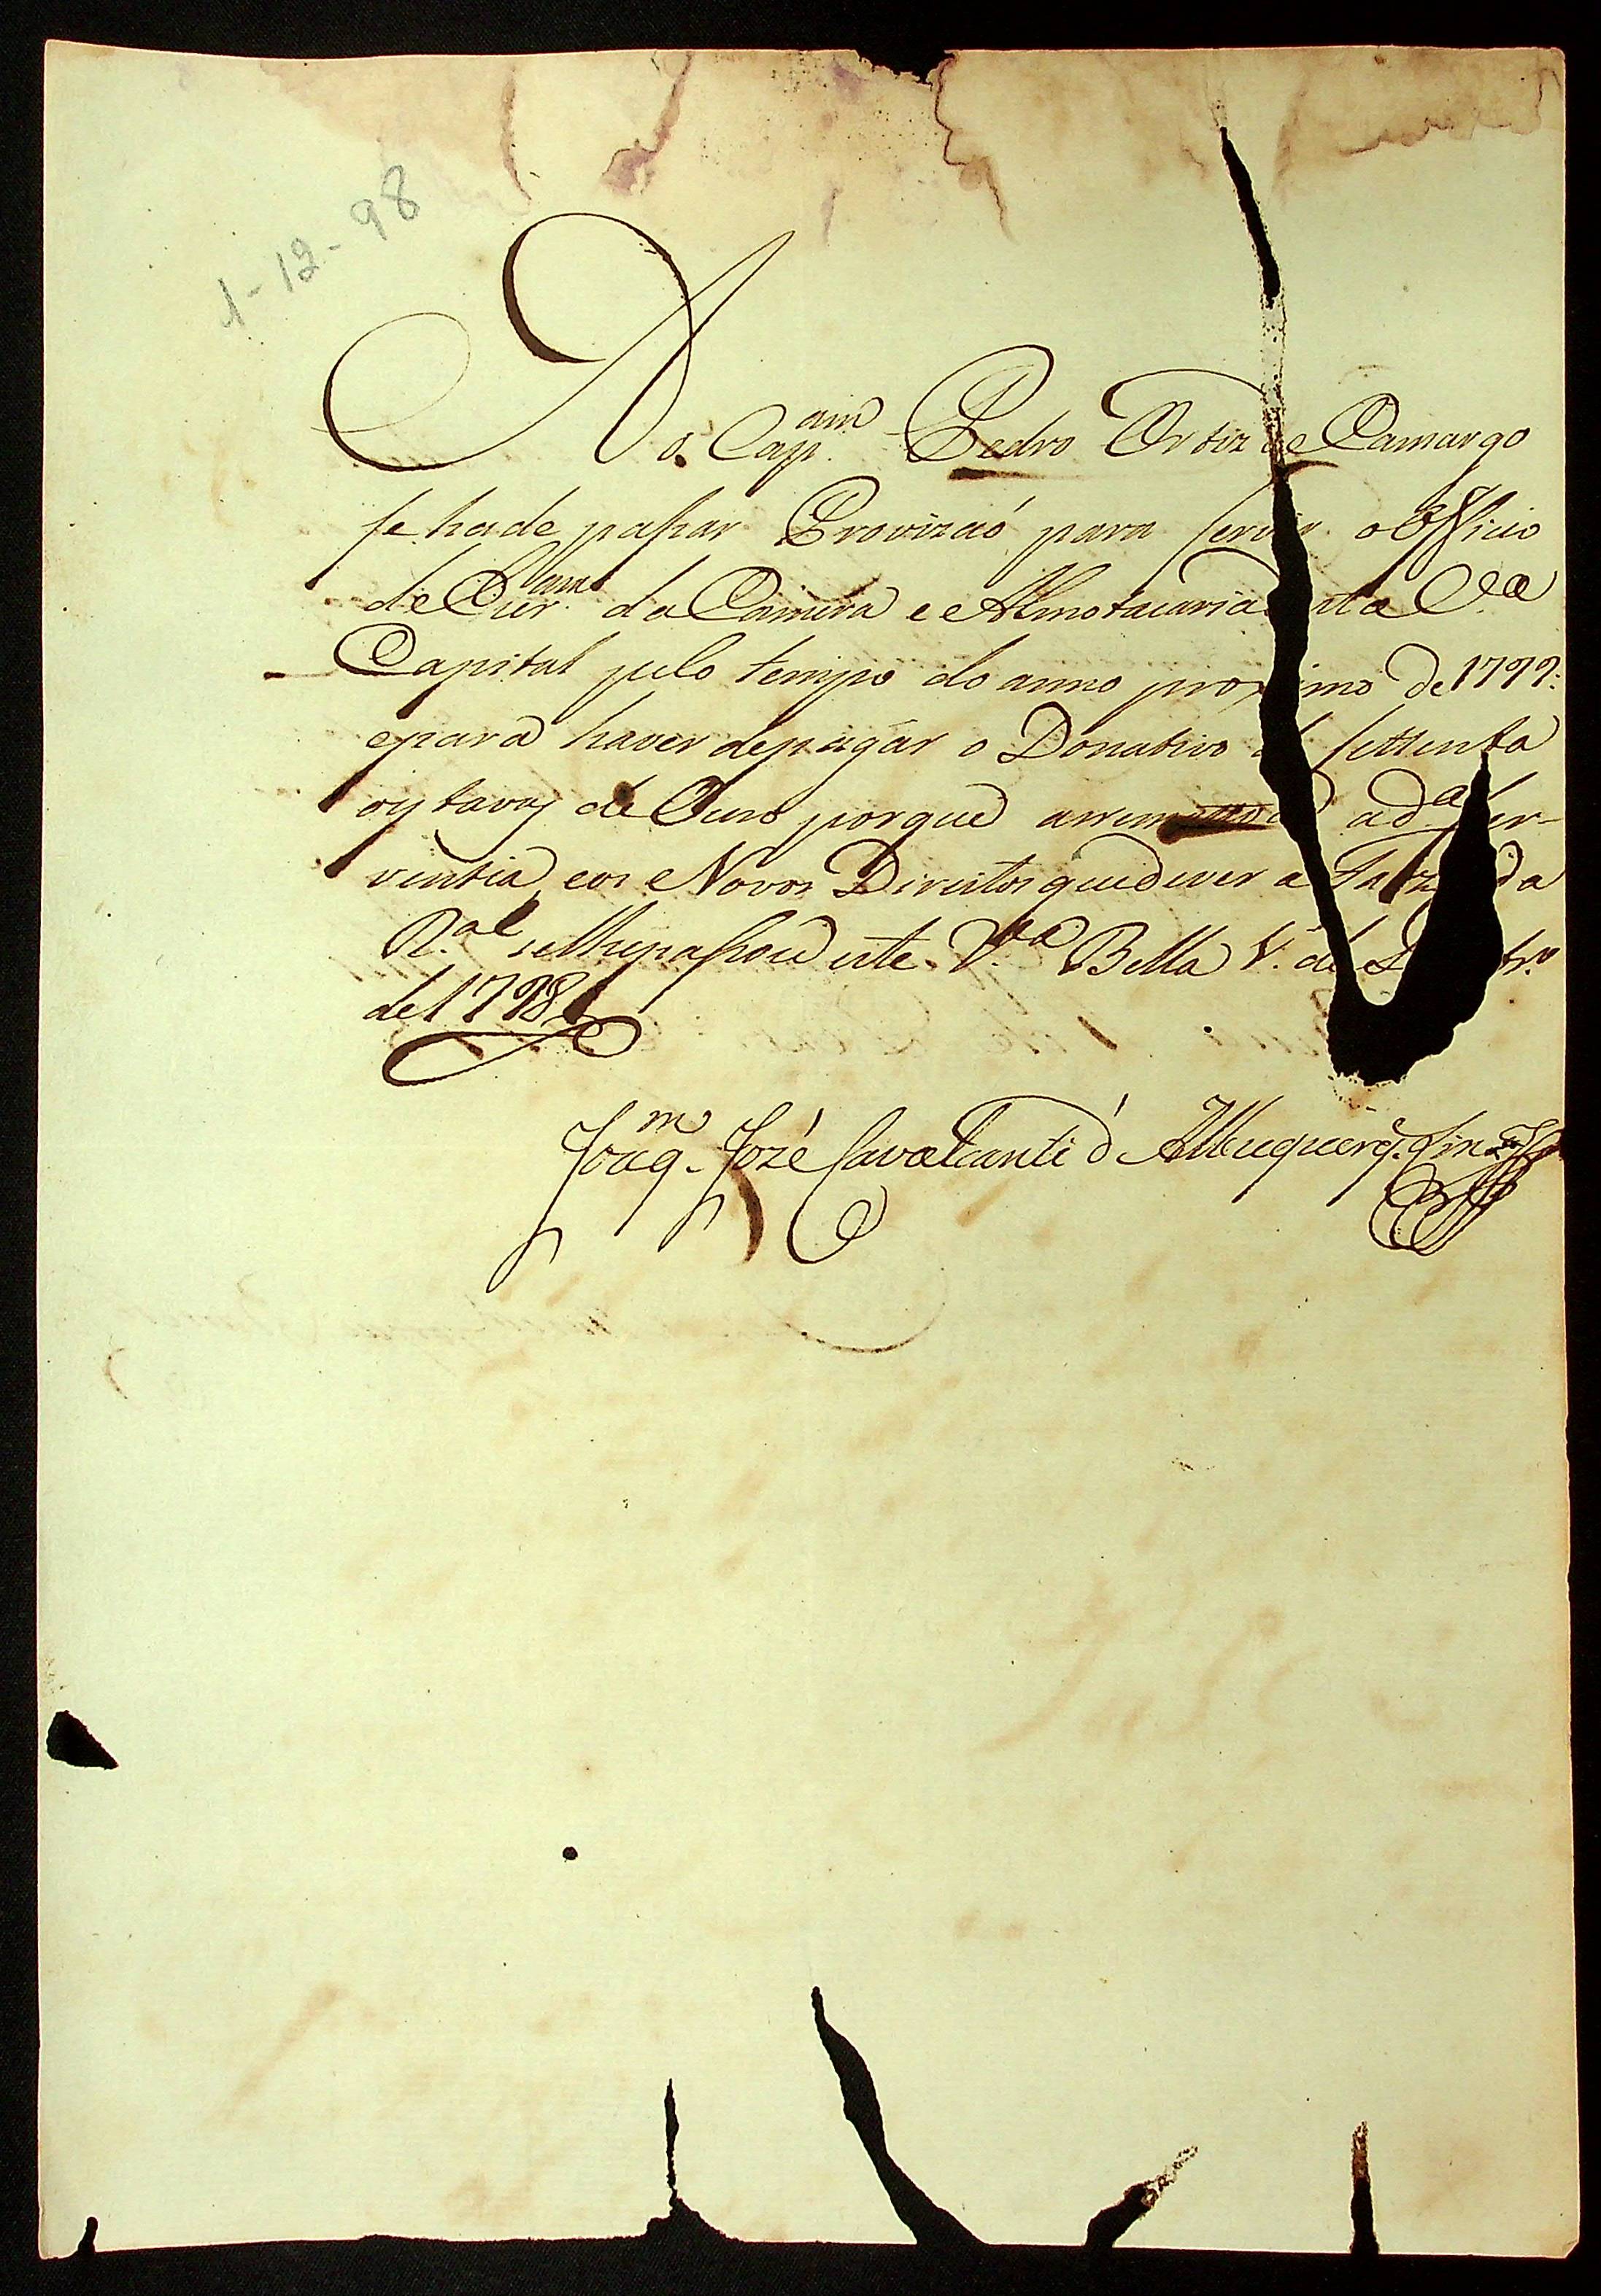 1-12-98
Ao Cap.am Pedro Ortiz de Camargo
se hade passar Provizaó para servir o Officio
de da Camera e Almotacaria V.a
Capital pelo tempo do anno proximo de 1799:
epara haver depagár o Donativo settenta
oytavas de Ouro porque ad.a Ser-
ventia, eos Novos Direitos quedever a Fazenda
R.al selhepassou este. V.a Bella 1.º de
de 1798
Joaq.m José Cavalcanti d'Albuquerq.